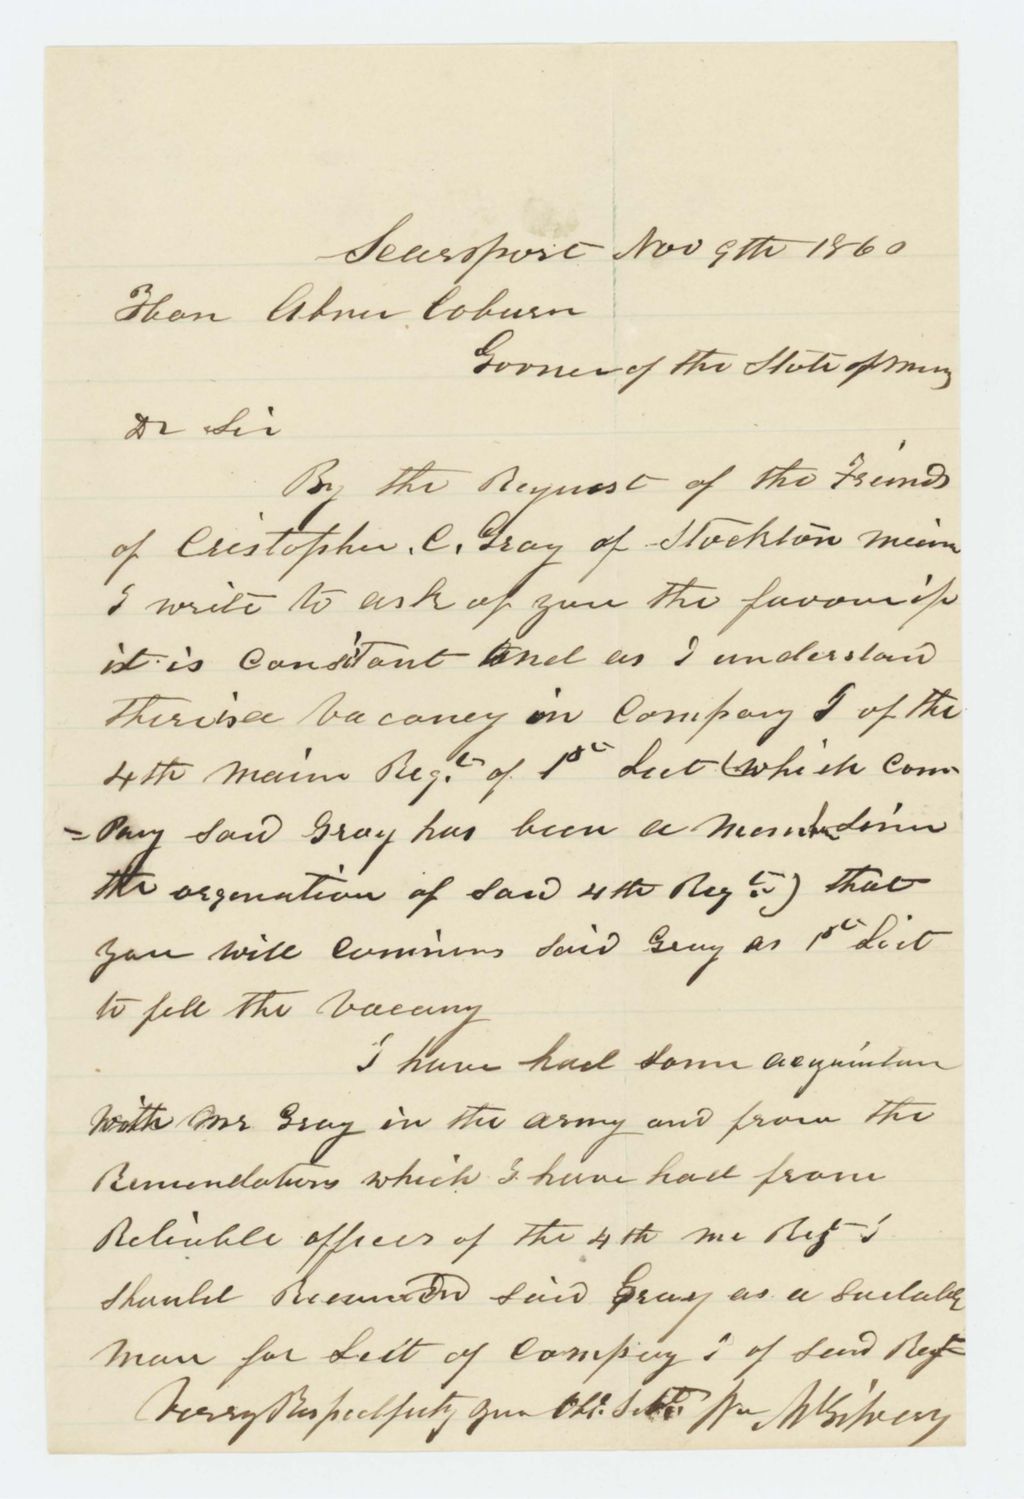 Searsport Nov 9th 1860
Hon Abner Coburn
Govner of the State of
Dr Sir
By the Request of the Freinds
of Cristopher. C. Gray of Stockton Maine
I write to ask of you the favour if
it is Consitant and as I understand
there is a Vacancy in Company I of the
4th Maine Regt. of 1st Lieut (which Com
=pany said Gray has been a Member Since
the orgenation of said 4th Regt.) that
you will Commins said Gray as 1st Liet
to fill the Vacancy
I have had some acquintan
With Mr Gray in the army and from the
which I have had from
Reliable officers of the 4th Me Regt I
should said Gray as a
man for Leit of Company I of said Regt
Verry Respectfuty your Obt. Sert. Wm McGilvery